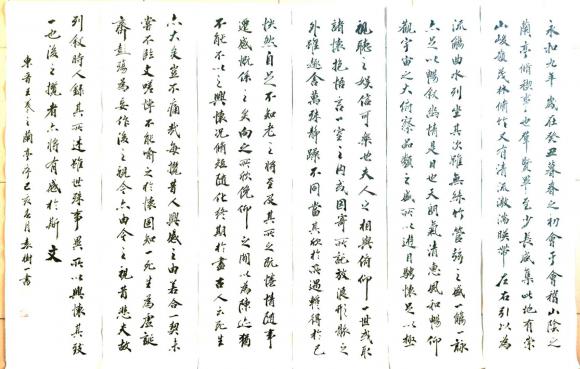 永和九年歲在癸丑暮春之初會于會稽山陰之
蘭亭脩禊事也群賢畢至少長咸集此地有崇
山峻嶺茂林脩竹又有清流激湍暎帶左右引以為
流觴曲水列坐其次雖無絲竹管弦之盛一觴一詠
亦足以暢敘幽情是日也天朗氣清惠風和暢仰
觀宇宙之大俯察品類之盛所以遊目騁懷足以極
視聽之娛信可樂也夫人之相與俯仰一世或取
諸懷抱悟言一室之內或因寄所託放浪形骸之
外雖趣舍萬殊靜躁不同當其欣於所遇暫得於己
快然自足不知老之將至及其所之既惓情隨事
遷感慨係之矣向之所欣俛仰之間以為陳迹猶
不能不以之興懷況脩短隨化終期於盡古人云死生
亦大矣豈不痛哉每攬昔人興感之由若合一契未
嘗不臨文嗟悼不能喻之於懷固知一死生為虛誕
齊彭殤為妄作後之視今亦由今之視昔悲夫故
列敘時人錄其所述雖世殊事異所以興懷其致
一也後之攬者亦將有感於斯文
東晉王羲之蘭亭序己亥月樹一書